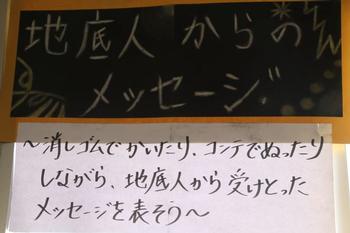 地底人からの
メッセージ
～消しゴムでかいたり、コンテでぬったり
しながら、地底人から受けとった
メッセージを表そう～